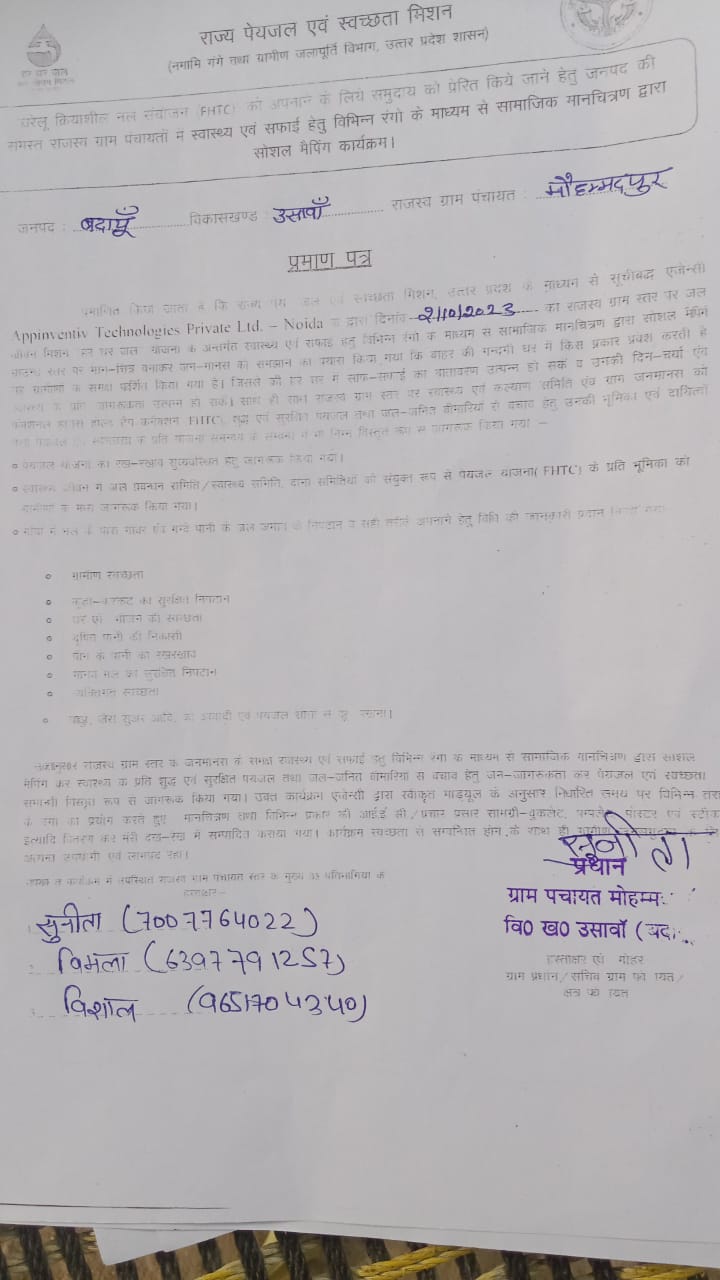 हर घर जल
राज्य पेयजल एवं स्वच्छता मिशन
(नमामि गंगे तथा ग्रामीण जलापूर्ति विभाग, उत्तर प्रदेश शासन)
घरेलू क्रियाशील नल संयोजन (FHTC) को अपनाने के लिये समुदाय को प्रेरित किये जाने हेतु जनपद की
समस्त राजस्व ग्राम पंचायतों में स्वास्थ्य एवं सफाई हेतु विभिन्न रंगो के माध्यम से सामाजिक मानचित्रण द्वारा
सोशल मैपिंग कार्यक्रम।
जनपद : बदायूँ विकासखण्ड : उसावाँ राजस्व ग्राम पंचायत : मौहम्मदपुर
प्रमाण पत्र
प्रमाणित किया जाता है कि राज्य पेय जल एवं स्वच्छता मिशन, उत्तर प्रदेश के माध्यम से सूचीबद्ध एजेन्सी
Appinventiv Technologies Private Ltd. – Noida के द्वारा दिनांक 2/10/2023 का राजस्व ग्राम स्तर पर जल
जीवन मिशन हर घर जल योजना के अन्तर्गत स्वास्थ्य एवं सफाई हेतु विभिन्न रंगो के माध्यम से सामाजिक मानचित्रण द्वारा सोशल मैपिंग
स्तर पर मान-चित्र बनाकर जन-मानस को समझाने का प्रयास किया गया कि बाहर की गन्दगी घर में किस प्रकार प्रवेश करती है
के समक्ष प्रर्दशित किया गया है। जिससे की हर घर में साफ-सफाई का वातावरण उत्पन्न हो सके व उनकी दिन-चर्या एंव
स्वास्थ्य के प्रति जागरूकता उत्पन्न हो सके। साथ ही साथ राजस्व ग्राम स्तर पर स्वास्थ्य एवं कल्याण समिति एंव ग्राम जनमानस को
हाउस होल्ड टैप कनेक्शन FHTC), शुद्ध एवं सुरक्षित पेयजल तथा जल-जनित बीमारियों से बचाव हेतु उनकी भूमिका एवं दायित्वों
के प्रति निम्न विस्तृत रूप से जागरूक किया गया : –
० पेयजल योजना का रख-रखाव सुव्यवस्थित हेतु जागरूक किया गया।
० स्वास्थ्य जीवन में जल प्रबन्धन समिति/स्वास्थ्य समिति, दोनो समितियों को संयुक्त रूप से पेयजल योजना( FHTC) के प्रति भूमिका को
जागरूक किया गया।
० गाँवो में नल के पास गोबर एंव गन्दे पानी के जल जमाव के निपटान व सही तरीके अपनाने हेतु विधि की जानकारी प्रदान
० ग्रामीण स्वच्छता
० कूड़ा-करकट का सुरक्षित निपटान
० घर एवं भोजन की स्वच्छता
० दूषित पानी की निकासी
० पीने के पानी का रखरखाव
० मानव मल का सुरक्षित निपटान
० व्यक्तिगत स्वच्छता
० सुअर आदि, को आबादी एवं पेयजल स्रोत से दूर रखना।
राजस्व ग्राम स्तर के जनमानस के समक्ष स्वास्थ्य एवं सफाई हेतु विभिन्न रंगो के माध्यम से सामाजिक मानचित्रण द्वारा सोशल
मैपिंग कर स्वास्थ्य के प्रति शुद्ध एवं सुरक्षित पेयजल तथा जल-जनित बीमारियों से बचाव हेतु जन-जागरूकता कर पेयजल एवं स्वच्छता
सम्बन्धी विस्तृत रूप से जागरूक किया गया। उक्त कार्यक्रम एजेन्सी द्वारा स्वीकृत माड्यूल के अनुसार निर्धारित समय पर विभिन्न
के रंगो का प्रयोग करते हुए मानचित्रण तथा विभिन्न प्रकार की आई० ई० सी०/प्रचार प्रसार सामग्री-बुकलेट, पम्पलेट पोस्टर एवं
इत्यादि वितरण कर मेरी देख-रेख में सम्पादित कराया गया। कार्यक्रम स्वच्छता से सम्बन्धित होने के साथ ही
उपयोगी एवं लाभप्रद रहा।
कार्यक्रम में उपस्थित राजस्व ग्राम पंचायत स्तर के मुख्य के
हस्ताक्षर:-
सुनीता
प्रधान
ग्राम पंचायत मोहम्म
वि० ख० उसावाँ (बदा
सुनीता (7007764022)
विमला (6397791257)
विशाल (9651704340)
हस्ताक्षर एवं मोहर
ग्राम प्रधान/सचिव ग्राम पंचायत/
क्षेत्र पंचायत